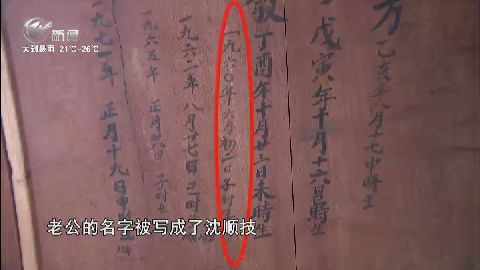 新闻
大到暴雨 21℃~26℃
方 乙亥年八月十七申時生
戊寅年十月十六日
丁酉年十月廿三日未時生
一九六〇年六月初二日子时
一九六二年八月廿七日
一九六五年 正月 六日 子时
一九七一年 正月十九日申
老公的名字被写成了沈顺技